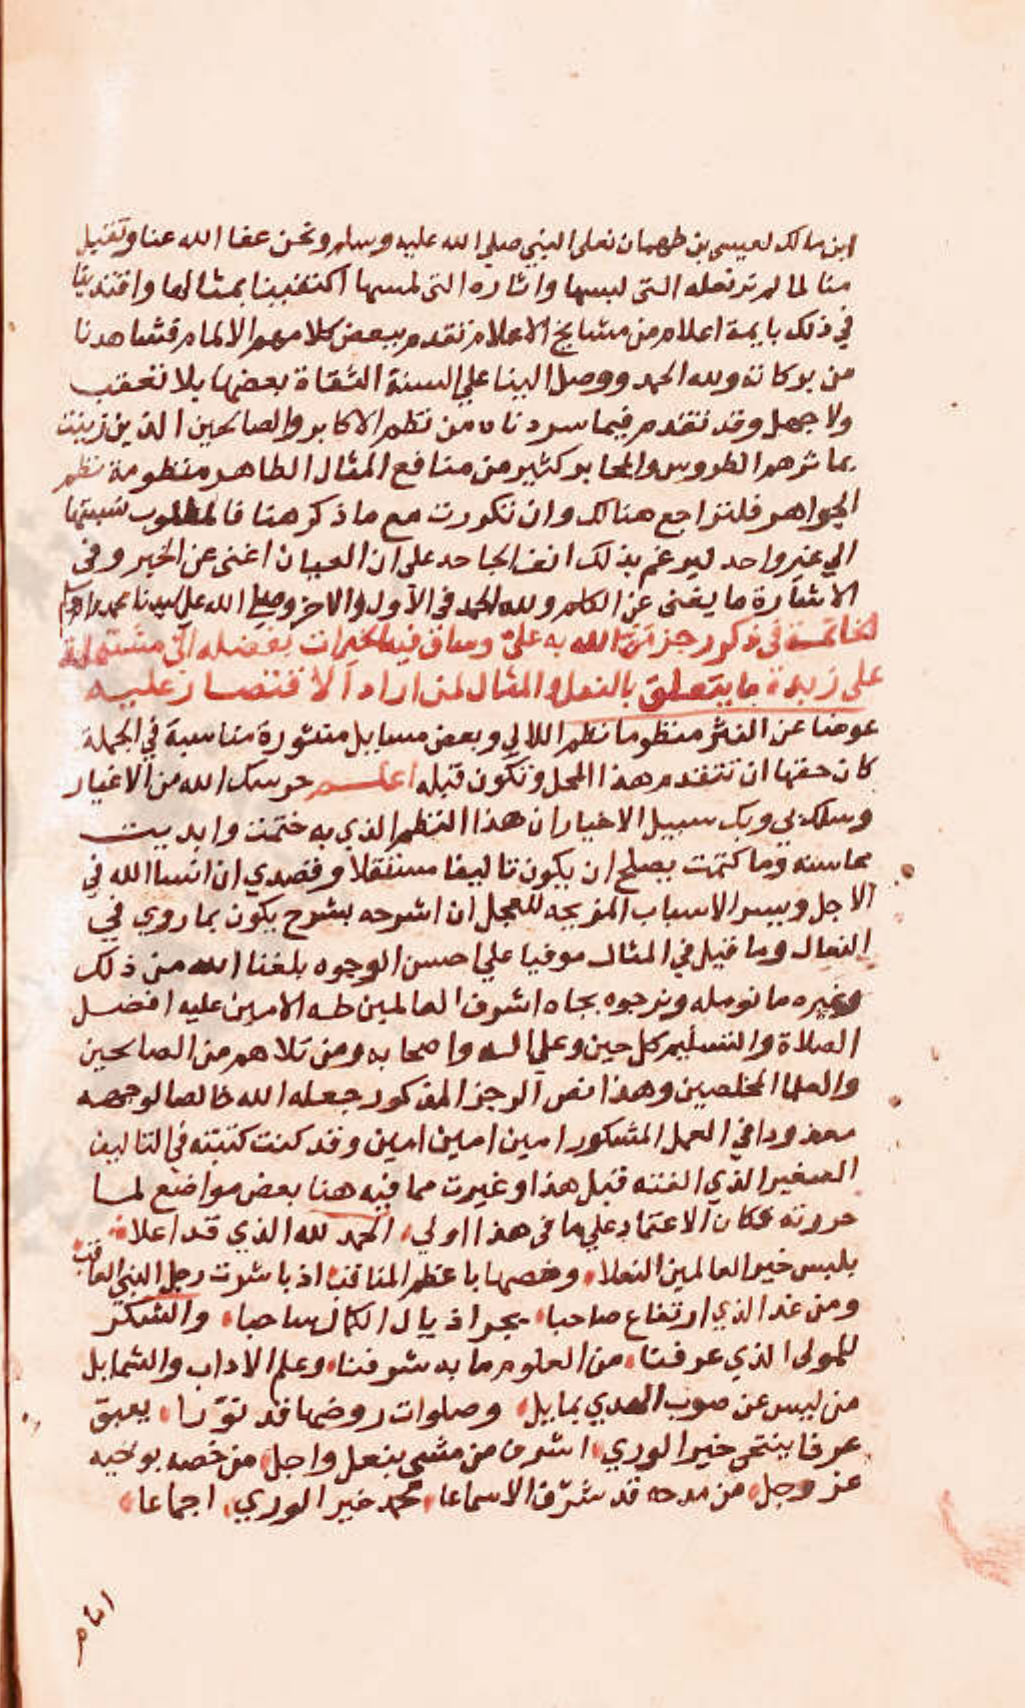 ابن مالك لعيسى بن طهمان نعلى النبي صلى الله عليه وسلم ونحن عفا الله عنا وتقبل
منا لما لم نر نعله التي لبسها واثاره التي لمسها اكتفينا بمثالها واقتدينا
في ذلك بايمة اعلام من مشايخ الاعلام تقدم ببعض كلامهم الالمام فشاهدنا
من بركاته ولله الحمد ووصل الينا علي السنة الثقاة بعضها بلا تعقب
ولا جهل وقد تقدم فيما سردناه من نظم الاكابر والصالحين الذين تزينت
بماثرهم الطروس والمحابر كثير من منافع المثال الطاهر منظومة نظم
الجواهر فلتراجع هنالك وان تكررت مع ما ذكر هنا فالمطلوب نسبتها
الي غير واحد ليرغم بذلك انف الجاحد على ان العيان اغنى عن الخبر وفى
الاشارة ما يغنى عن الكلم ولله الحمد فى الآول والاخر وصلى الله علي سيدنا محمد واله وسلم
الخاتمة فى ذكر رجز منّ الله به علىّ وساق فيه الخيرات بفضله الىّ مشتملة
على زبدة ما يتعلق بالنعل والمثال لمن اراد الاقتصار عليه
عوضا عن النثر منظوما نظم اللالي وبعض مسايل منثورة مناسبة في الجملة
كان حقها ان تتقدم هذا المحل وتكون قبله اعلم حرسك الله من الاغيار
وسلك بي وبك سبيل الاخيار ان هذا النظم الذي به ختمت وابديت
محاسنه وما كتمت يصلح ان يكون تاليفا مستقلا وقصدي ان انسا الله في
الاجل ويسر الاسباب المريحه للعجل ان اشرحه بشرح يكون بما روي في
النعال وما قيل في المثال موفيا علي احسن الوجوه بلغنا الله من ذلك
وغيره ما نومله ونرجوه بجاه اشرف العالمين طه الامين عليه افضل
الصلاة والتسليم كل حين وعلي اله واصحابه ومن تلاهم من الصالحين
والعلما المخلصين وهذا نص الرجز المذكور جعله الله خالصا لوجهه
معدودا في العمل المشكور امين امين امين وقد كنت كتبته في التاليف
الصغير الذي الفته قبل هذا وغيرت مما فيه هنا بعض مواضع لما
حررته فكان الاعتماد علي ما فى هذا اولي الحمد لله الذي قد اعلا
بلبس خير العالمين النعلا وخصها باعظم المناقب اذ باشرت رجل النبي العاقب
ومن غدا لذي ارتفاع صاحبا يجر اذيال الكمال ساحبا والشكر
للمولى الذي عرفنا من العلوم ما به شرفنا وعلم الاداب والشمايل
من ليس عن صوب الهدي بمايل وصلوات روضها قد نوّرا يعبق
عرفا ينتحى خير الوري اشرف من مشى بنعل واجل من خصه بوحيه
عز وجل من مدحه قد شرّف الاسماعا محمد خير الوري اجماعا
امام